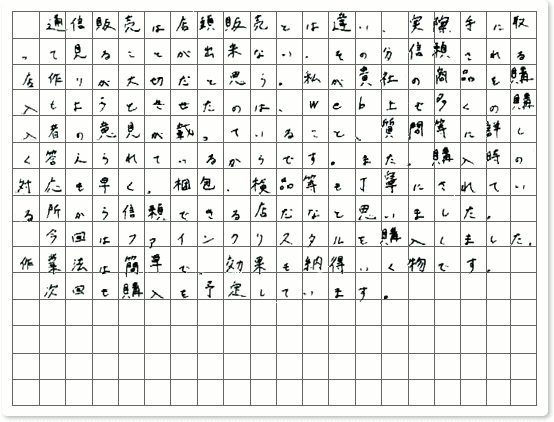 通信販売は店頭販売とは違い、実際手に取
って見ることが出来ない。その分信頼される
店作りが大切だと思う。私が貴社の商品を購
入しようとさせたのは、web上で多くの購
入者の意見が載っていること、質問等に詳し
く答えられているからです。また、購入時の
対応も早く、梱包、検品等も丁寧にされてい
る所から信頼できる店だなと思いました。
今回はファインクリスタルを購入しました。
作業法は簡単で、効果も納得いく物です。
次回も購入を予定しています。